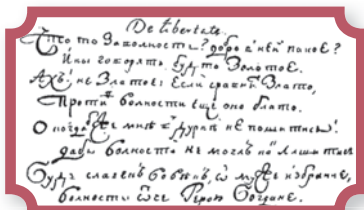 De libertate.
Что то за волность? Добро в ней какое?
Ины говорять, будто золотое.
Ахъ, не златое: если сравнить злато,
Против волности еще оно блато.
О когда бъ мне в дурне не пошитись,
Дабы волности не могъ лишитись.
Будь славенъ во векъ, о муже избранне,
волности отче, Герою Богдане.